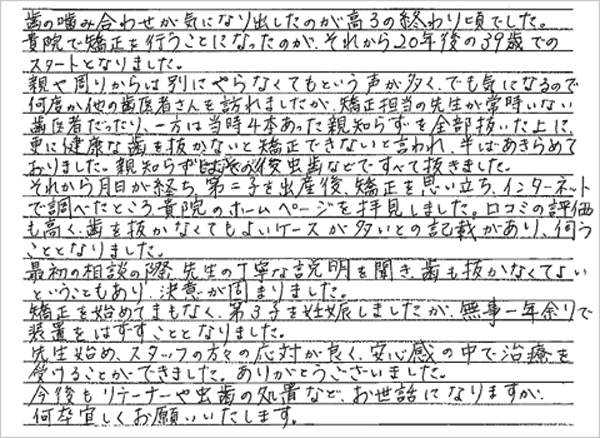 歯の噛み合わせが気になり出したのが高3の終わり頃でした。
貴院で矯正を行うことになったのが、それから20年後の39歳での
スタートとなりました。
親や周りからは別にやらなくてもという声が多く、でも気になるので
何度か他の歯医者さんを訪れましたが、矯正担当の先生が常時いない
歯医者だったり、一方は当時4本あった親知らずを全部抜いた上に、
更に健康な歯を抜かないと矯正できないと言われ、半ばあきらめて
おりました。親知らずはその後虫歯などですべて抜きました。
それから月日が経ち、第二子を出産後、矯正を思い立ち、インターネット
で調べたところ、貴院のホームページを拝見しました。口コミの評価
も高く、歯を抜かなくてもよいケースが多いとの記載があり、伺う
こととなりました。
最初の相談の際、先生の丁寧な説明を聞き、歯も抜かなくてよい
ということもあり、決意が固まりました。
矯正を始めてまもなく、第3子を妊娠しましたが、無事一年余りで
装置をはずすこととなりました。
先生始め、スタッフの方々の応対が良く、安心感の中で治療を
受けることができました。ありがとうございました。
今後もリテーナーや虫歯の処置など、お世話になりますが、
何卒宜しくお願いいたします。